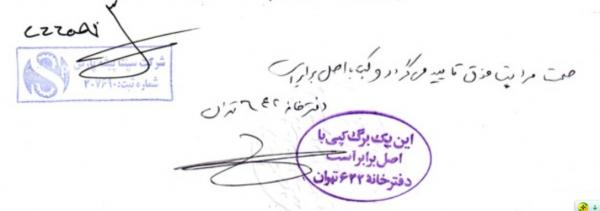 ۲۲۳۵۸۱
شرکت سپنتا پیشه پارس
شماره ثبت: ۲۰۷۶۱۰
صحت مراتب فوق تایید می گردد و کپی با اصل برابر است
دفترخانه ۶۲۲ تهران
این یک برگ کپی با
اصل برابر است
دفترخانه ۶۲۲ تهران